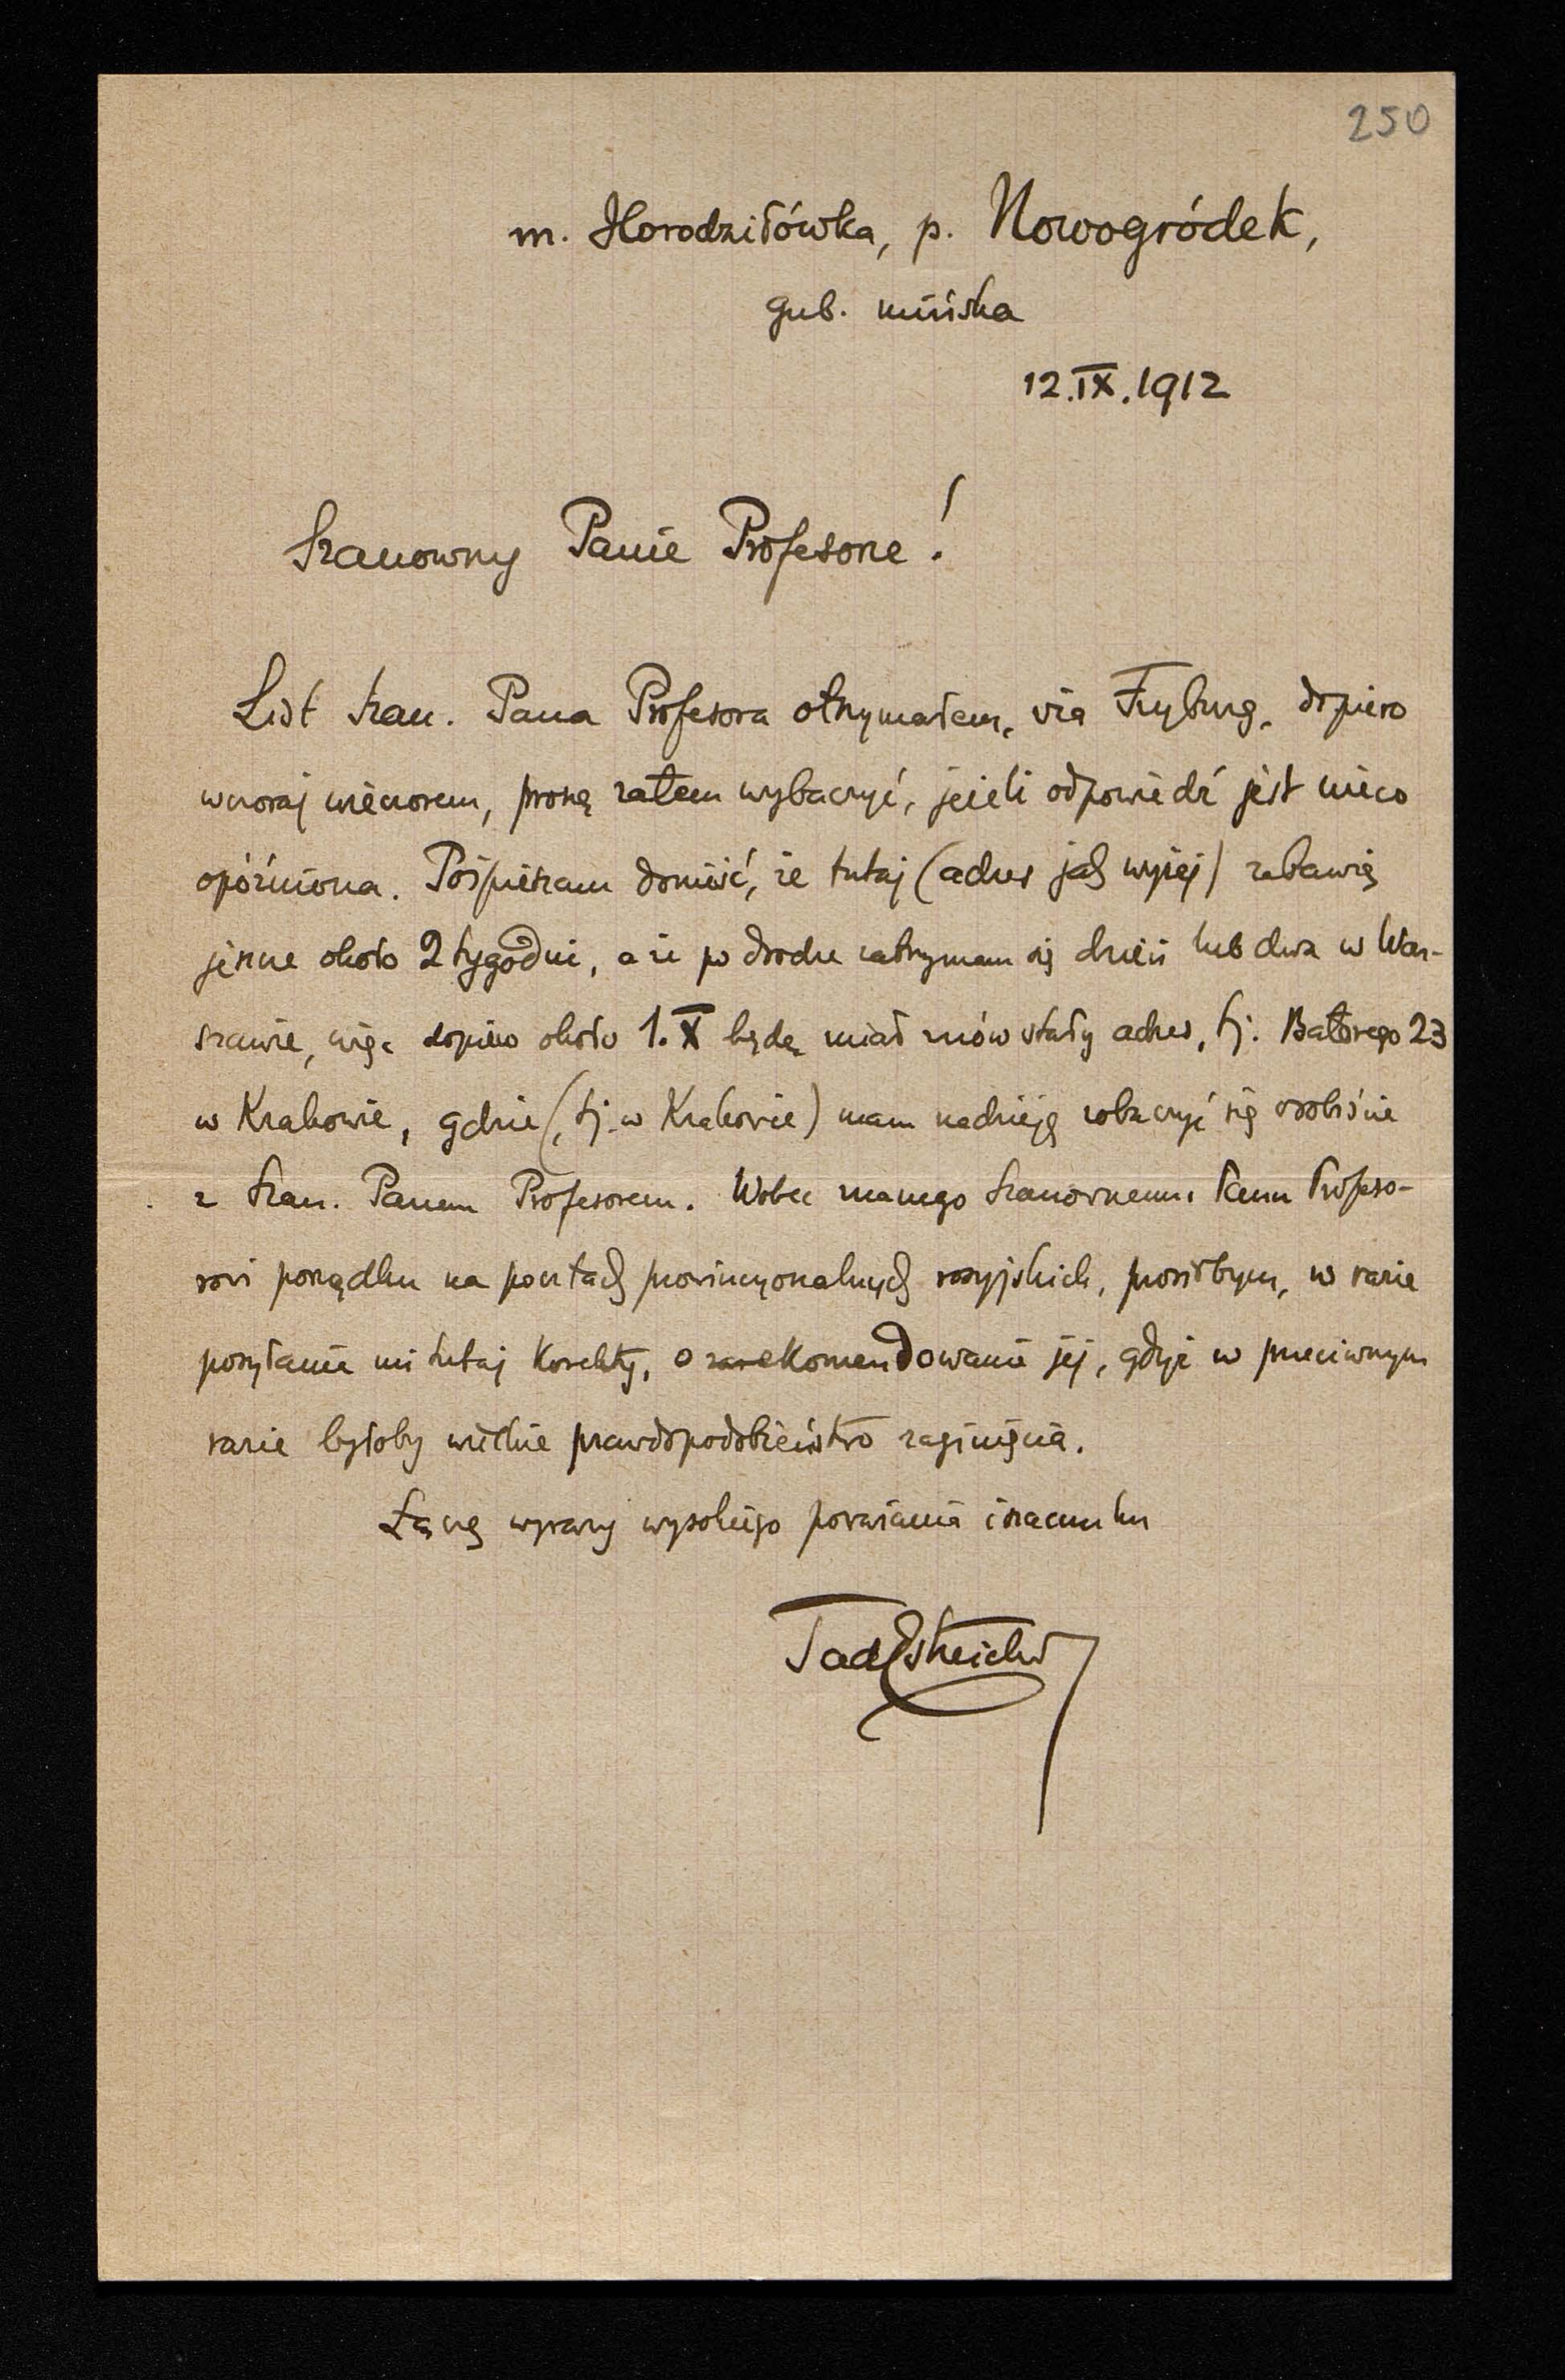 250
m. Horodziłówka, p. Nowogródek,
gub. mińska
12.IX.1912
Szanowny Panie Profesorze!
List Szan. Pana Profesora otrzymałem, via Fryburg, dopiero
wczoraj wieczorem, proszę zatem wybaczyć, jeżeli odpowiedź jest nieco
opóźniona. Pośpieszam donieść, że tutaj (adres jak wyżej) zabawię
jeszcze około 2 tygodni, a że po drodze zatrzymam się dzień lub dwa w War-
szawie, więc dopiero około 1.X będę miał znów stały adres, tj. Batorego 23
w Krakowie, gdzie (tj. w Krakowie) mam nadzieję zobaczyć się osobiście
z Szan. Panem Profesorem. Wobec znanego Szanownemu Panu Profeso-
rowi porządku na pocztach prowincyonalnych rosyjskich, prosiłbym, w razie
posyłania mi tutaj korekty, o zarekomendowanie jej, gdyż w przeciwnym
razie byłoby wielkie prawdopodobieństwo zaginięcia.
Łączę wyrazy wysokiego poważania i szacunku
Tad Estreicher